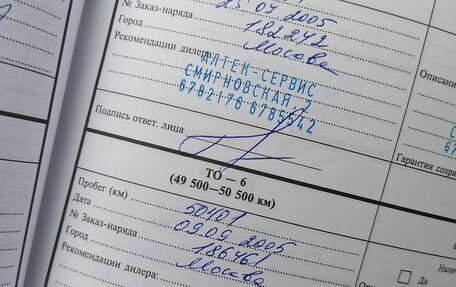 25 04 2005
№ Заказ-наряда 182242
Город Москва
Рекомендации дилера
АЛТЕК-СЕРВИС
СМИРНОВСКАЯ 2
6702176 6785542
Подпись ответ. лица
Описани
Гарантия сохра
ТО — 6
(49 500—50 500 км)
Пробег (км) 50401
Дата 09.09 2005
№ Заказ-наряда 186461
Город Москва
Рекомендации дилера:
Налич
Да